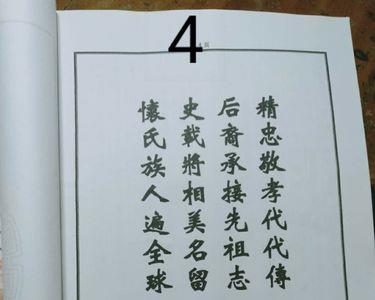 4
精忠敬孝代代傳
后裔承接先祖志
史載將相美名留
懷氏族人遍全球